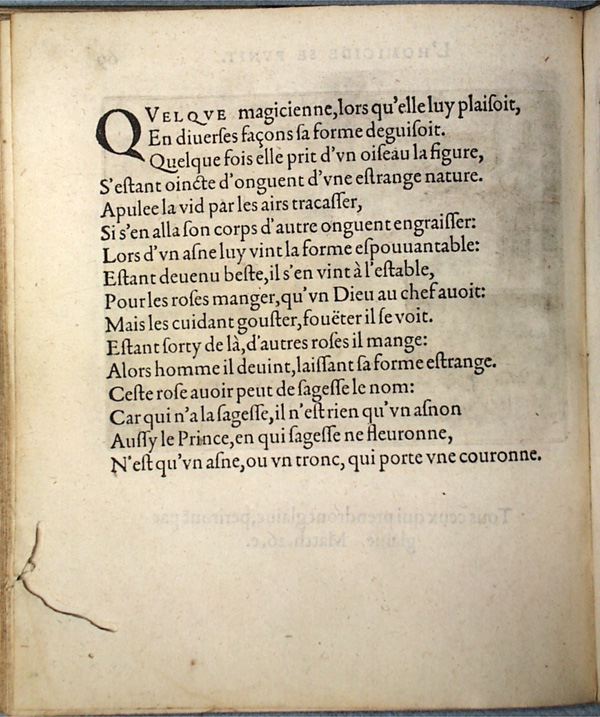 QVELQVE magicienne, lors qu'elle luy plaiſoit,
En diuerſes façons ſa forme deguiſoit.
Quelque fois elle prit d'vn oiſeau la figure,
S'eſtant oincte d'onguent d'vne eſtrange nature.
Apulee la vid par les airs tracaſſer,
Si s'en alla ſon corps d'autre onguent engraiſſer:
Lors d'vn aſne luy vint la forme eſpouuantable:
Eſtant deuenu beſte, il s'en vint à l'eſtable,
Pour les roſes manger, qu'vn Dieu au chef auoit:
Mais les cuidant gouſter, fouëter il ſe voit.
Eſtant ſorty de là, d'autres roſes il mange:
Alors homme il deuint, laiſſant ſa forme eſtrange.
Ceſte roſe auoir peut de ſageſſe le nom:
Car qui n'a la ſageſſe, il n'eſt rien qu'vn aſnon
Auſſy le Prince, en qui ſageſſe ne fleuronne,
N'eſt qu'vn aſne, ou vn tronc, qui porte vne couronne.